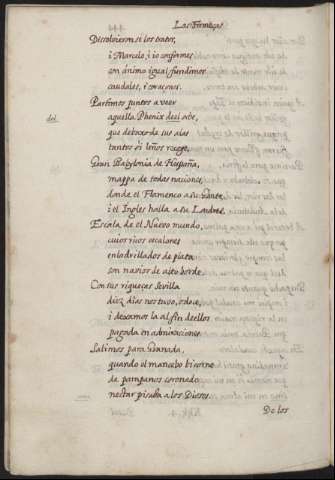 Las Firmeças
Dissolvieronsi los tratos,
i Marcelo, i io conformes
con animo igual fundimos
caudales, i coraçones.
Partimos juntos a veer
aquella Phenix del orbe,
del
que debaxo de sus alas
tantos hi leños recoge,
Gran Babylonia de Hespaña,
mappa de todas naciones,
donde el Flamenco a su Gante,
i el Ingles halla a su Londres.
Escala de el Nuevo mundo,
cuios ricos escalones
enladrillados de plata
son navios de alto borde.
Con sus riqueças Sevilla
diez dias nos tuvo, o doce,
i dexamos la al fin dellos
pagada en admiraciones.
Salimos para Granada,
quando el mancebo bicorne
de pampanos coronado
nectar pisaba a los Dioses.
De los